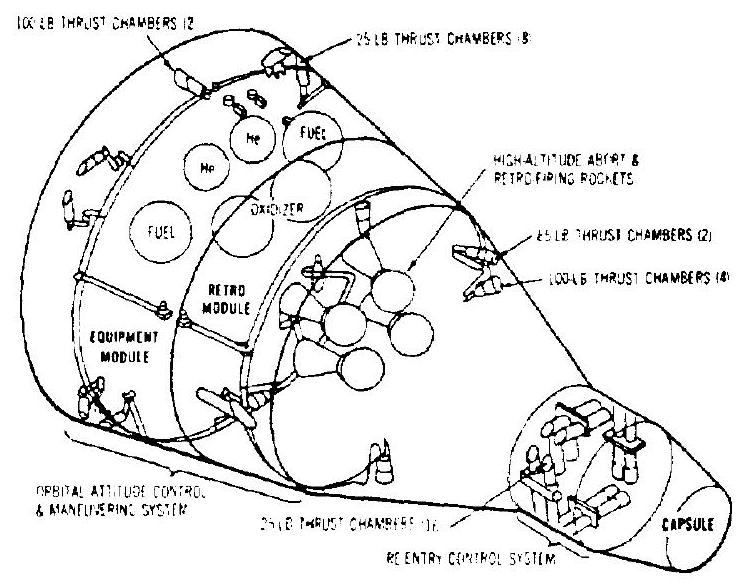 100-LB THRUST CHAMBERS (2
25 LB THRUST CHAMBERS (8)
FUEL
He
He
HIGH-ALTITUDE ABORT &
RETRO FIRING ROCKETS
OXIDIZER
FUEL
85-LB THRUST CHAMBERS (2)
100-LB THRUST CHAMBERS (4)
RETRO
MODULE
EQUIPMENT
MODULE
ORBITAL ATTITUDE CONTROL
& MANEUVERING SYSTEM
CAPSULE
25 LB THRUST CHAMBERS
RE ENTRY CONTROL SYSTEM